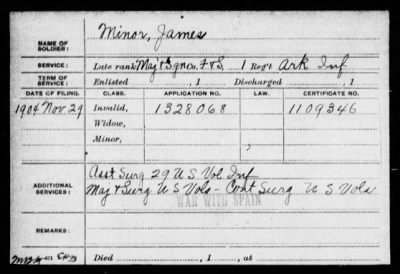 Minor, James
NAME OF SOLDIER:
SERVICE: Late rank Maj & Sgn Co. F&S, 1 Reg't Ark Inf
TERM OF SERVICE: Enlisted , 1 Discharged , 1
DATE OF FILING. CLASS. APPLICATION NO. LAW. CERTIFICATE NO.
1904 Nov. 29 Invalid, 1328068 1109346
Widow,
Minor,
ADDITIONAL SERVICES:
Asst Surg 29 U S Vol Inf
Maj & Surg U S Vols - Cont Surg U S Vols
WAR WITH SPAIN
REMARKS:
Died , 1 , at